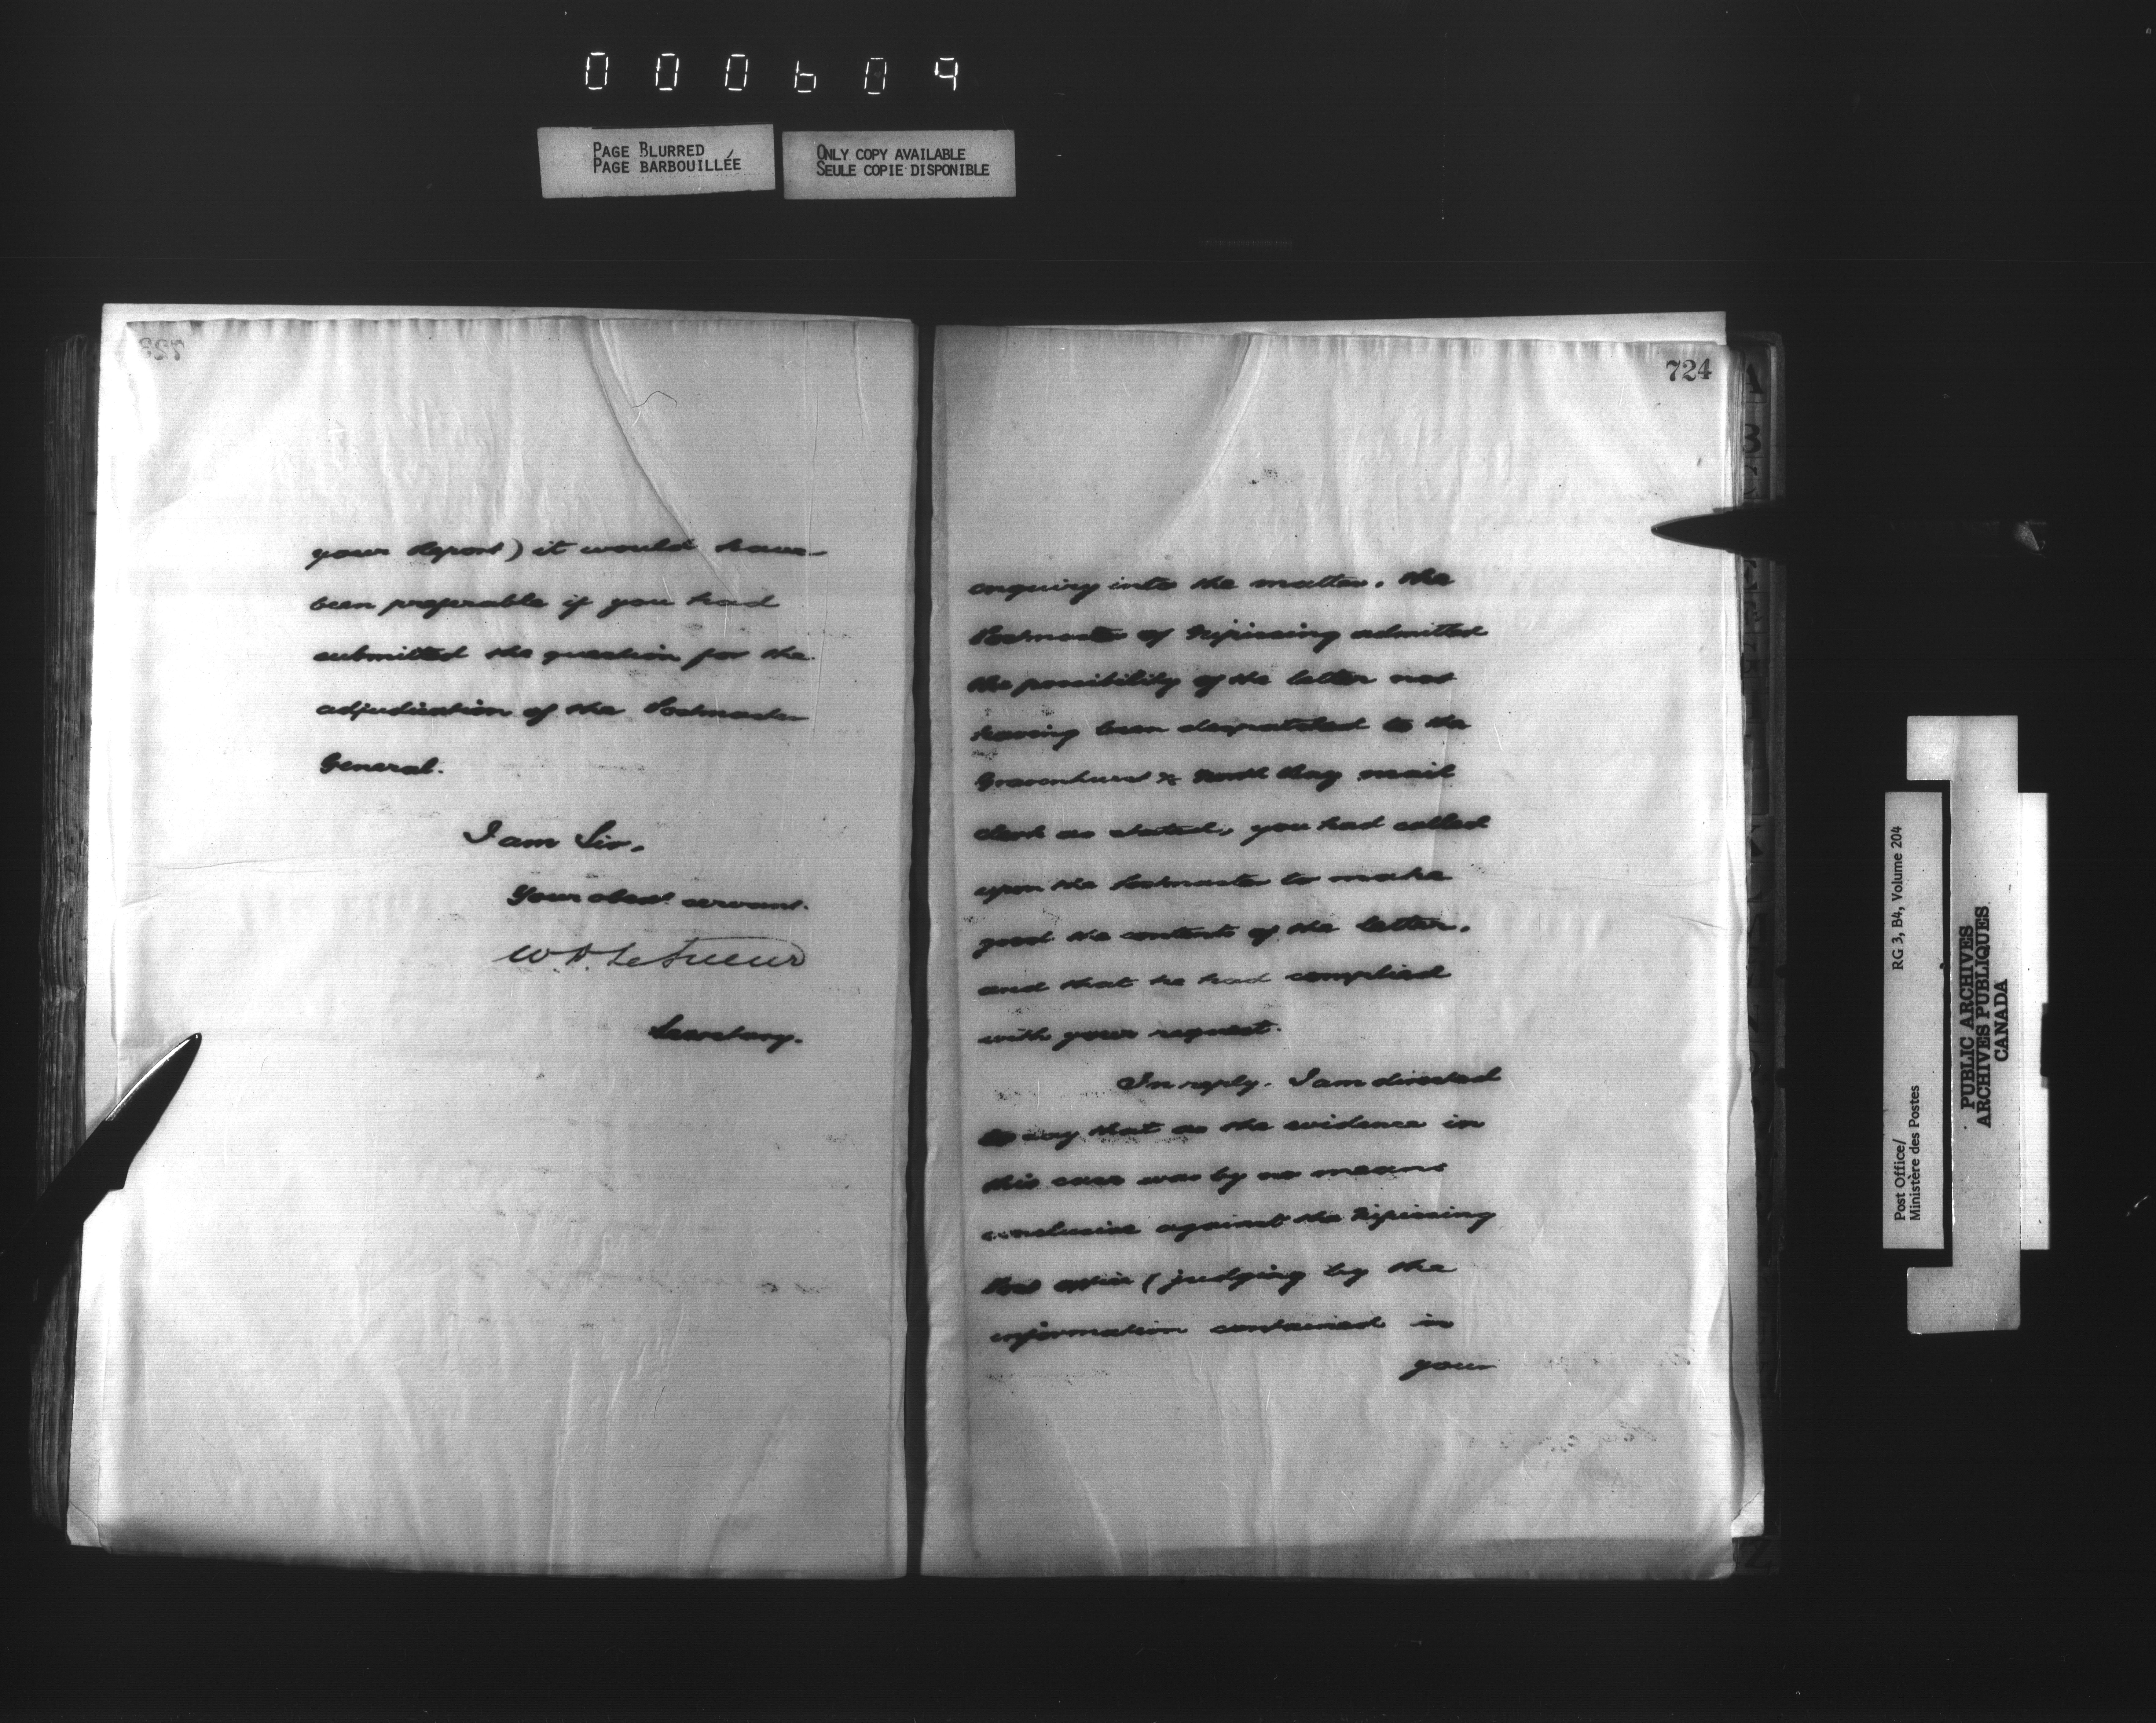 000609
PAGE BLURRED
PAGE BARBOUILLÉE
ONLY COPY AVAILABLE
SEULE COPIE DISPONIBLE
your Report) it would have
been preferable if you had
submitted the question for the
adjudication of the Postmaster
General.
I am Sir,
Your obedt. servant.
W D LeSueur
Secretary.
724
enquiry into the matter, the
Postmaster of Nipissing admitted
the possibility of the letter not
having been despatched to the
Gravenhurst & North Bay mail
clerk as stated, you had called
upon the Postmaster to make
good the contents of the letter,
and that he had complied
with your request.
In reply, I am directed
to say that as the evidence in
this case was by no means
conclusive against the Nipissing
Post Office (judging by the
information contained in
your
RG 3, B4, Volume 204
Post Office/
Ministère des Postes
PUBLIC ARCHIVES
ARCHIVES PUBLIQUES
CANADA